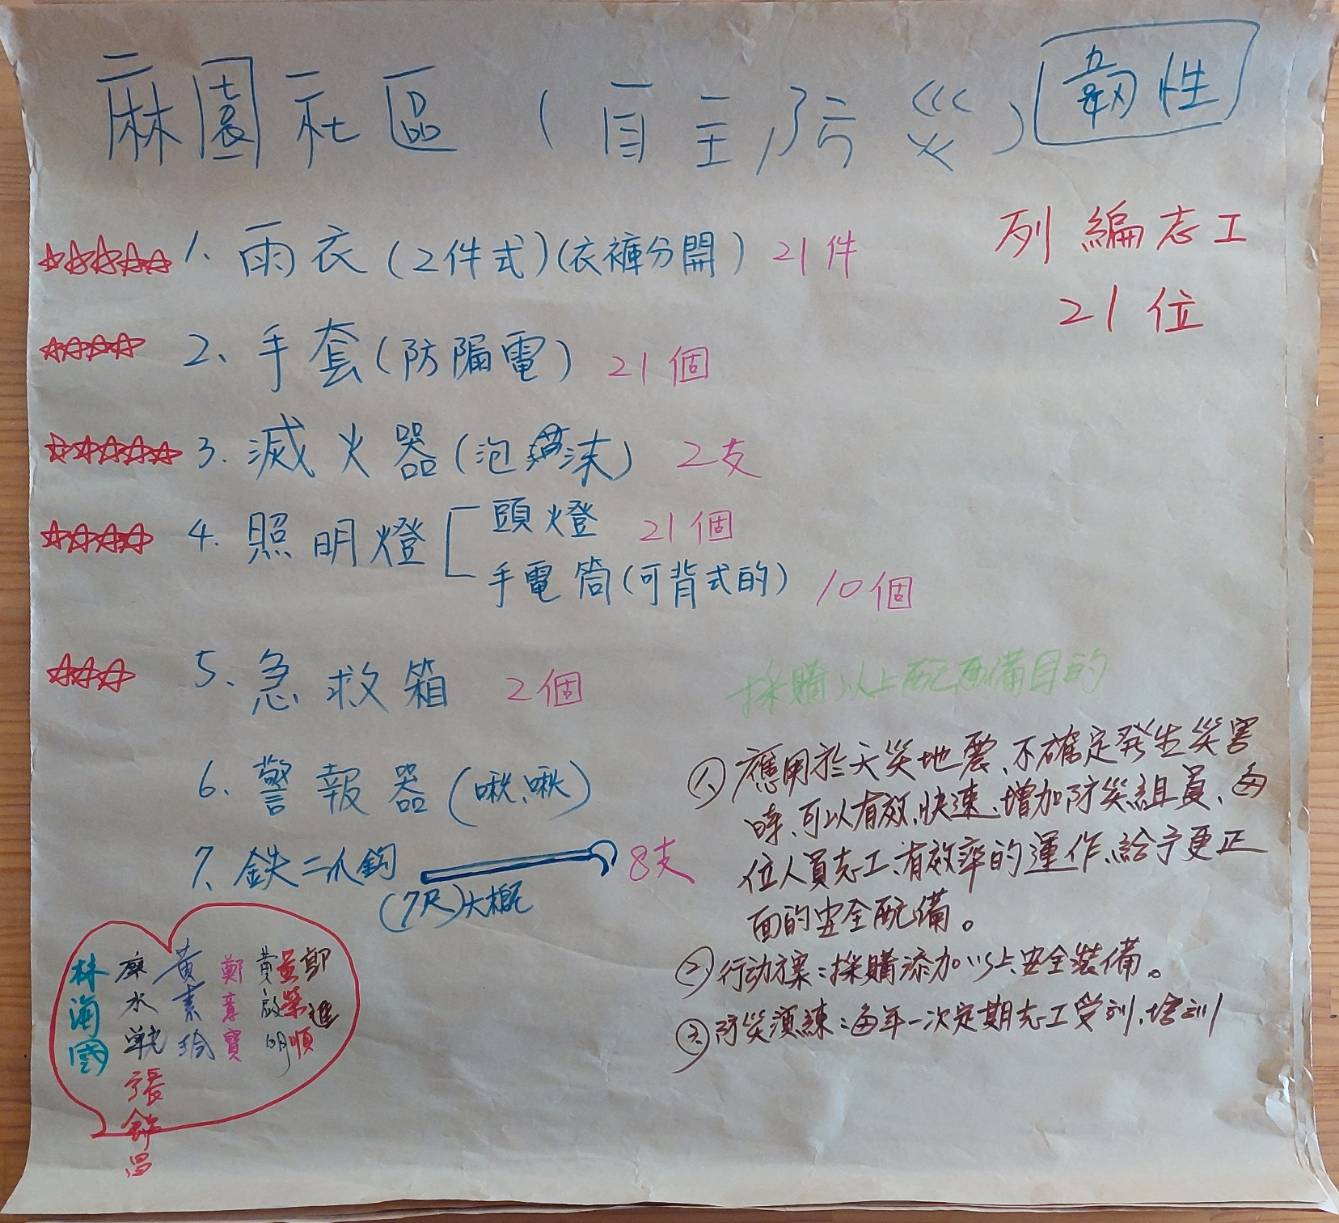 麻園社區(自主防災) 韌性
列編志工
21位
1. 雨衣(2件式)(衣褲分開) 21件
2、手套(防漏電) 21個
3. 滅火器(泡沫) 2支
4. 照明燈 頭燈 21個
手電筒(可背式的) 10個
5、急救箱 2個
6. 警報器(啾、啾)
7、鉄二爪鈎 8支
(7尺)大概
採購以上配備目的
① 應用於天災地震、不確定發生災害
時、可以有效、快速、增加防災組員、每
位人員志工、有效率的運作、給予更正
面的安全配備。
② 行动方案:採購添加以上安全裝備。
③ 防災演練:每年一次定期志工受訓、培訓
林海國
廖水
黃素
鄭 寶
黃啟明
榮順
鄭進
張 昌